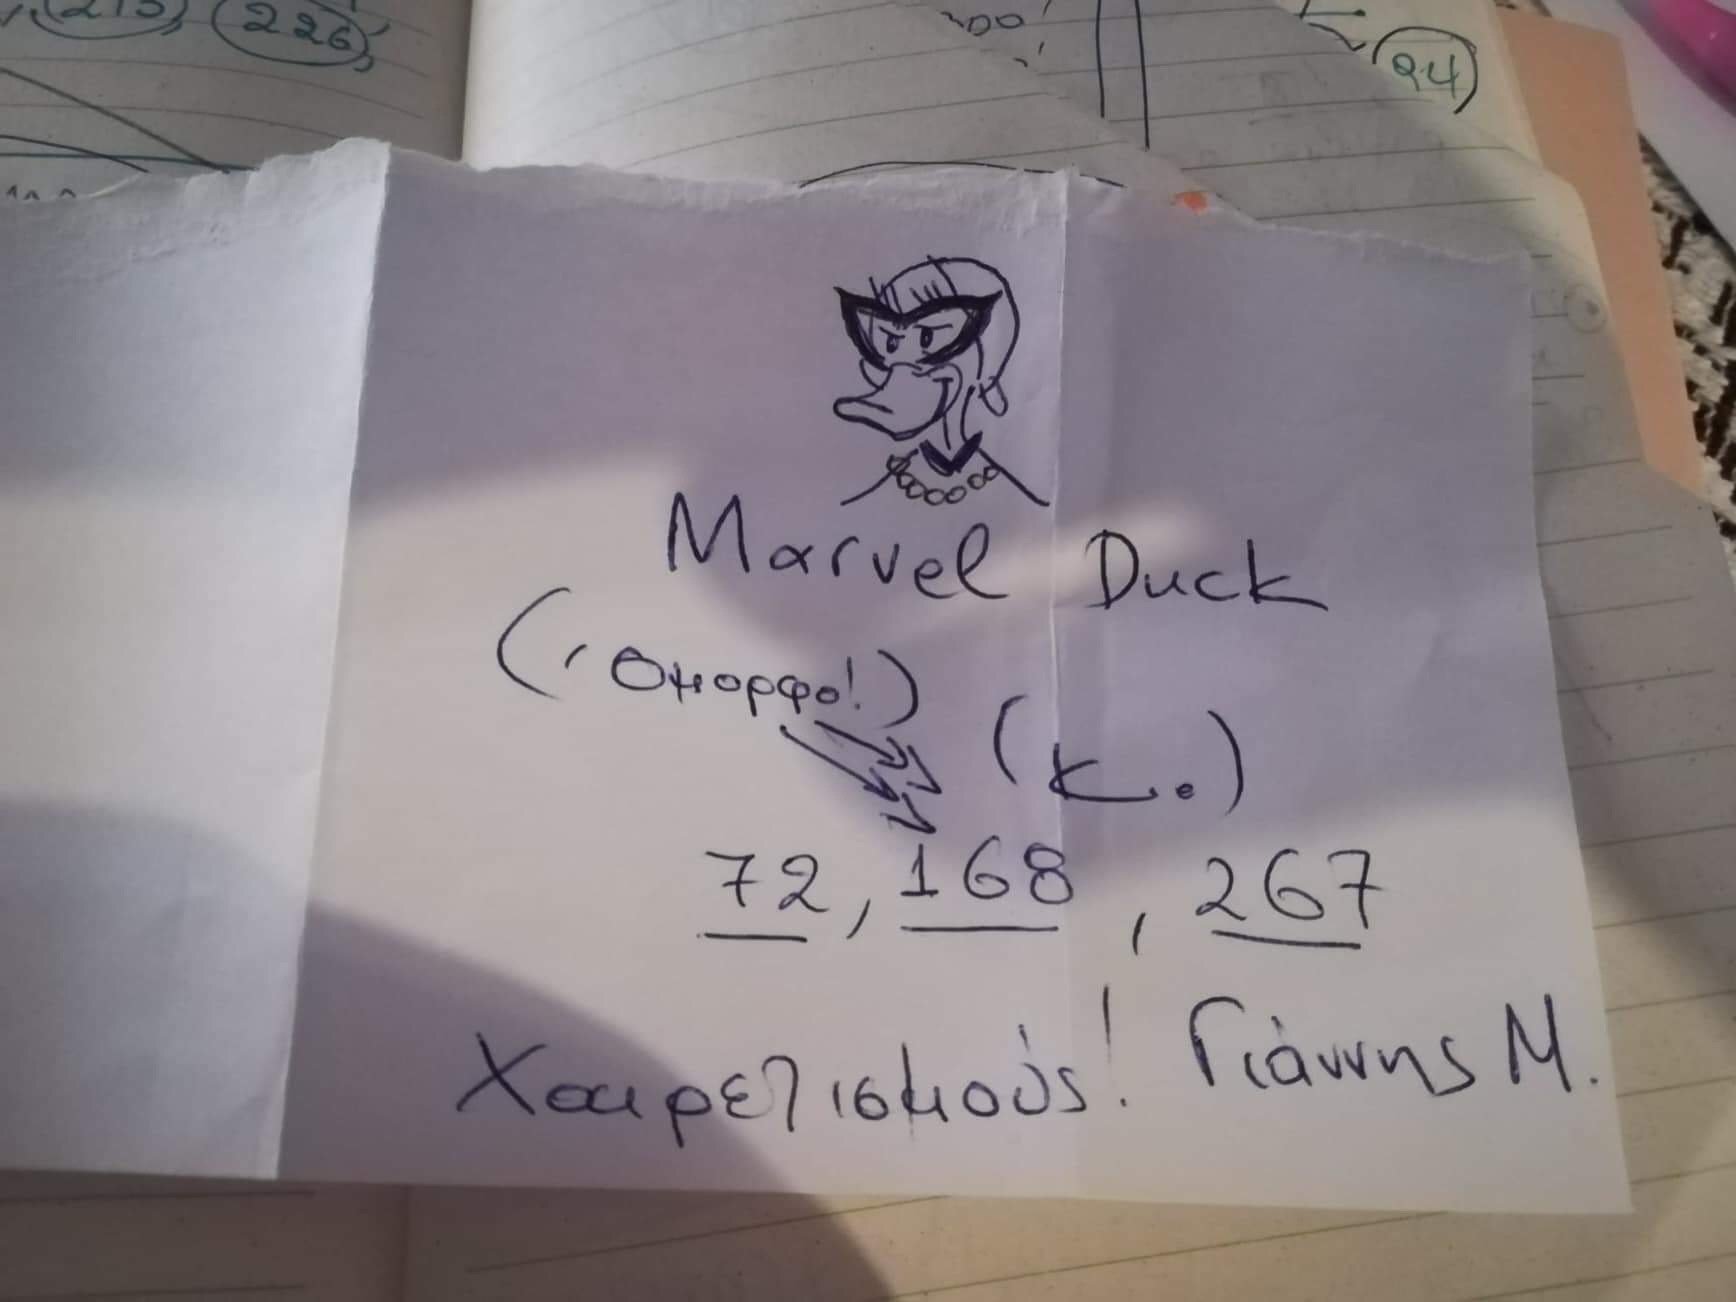 226
24
Marvel Duck
(, όμορφο!)
(κ.)
72, 168, 267
Χαιρετισμούς! Γιάννης Μ.